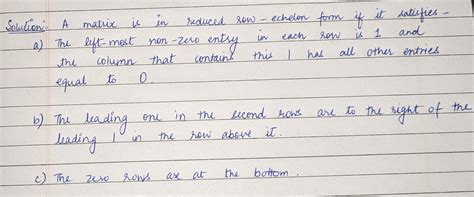 Solution: A matrix is in reduced row-echelon form if it satisfies -
a) The left-most non-zero entry in each row is 1 and
the column that contains this 1 has all other entries
equal to 0.
b) The leading one in the second rows are to the right of the
leading 1 in the row above it.
c) The zero rows are at the bottom.